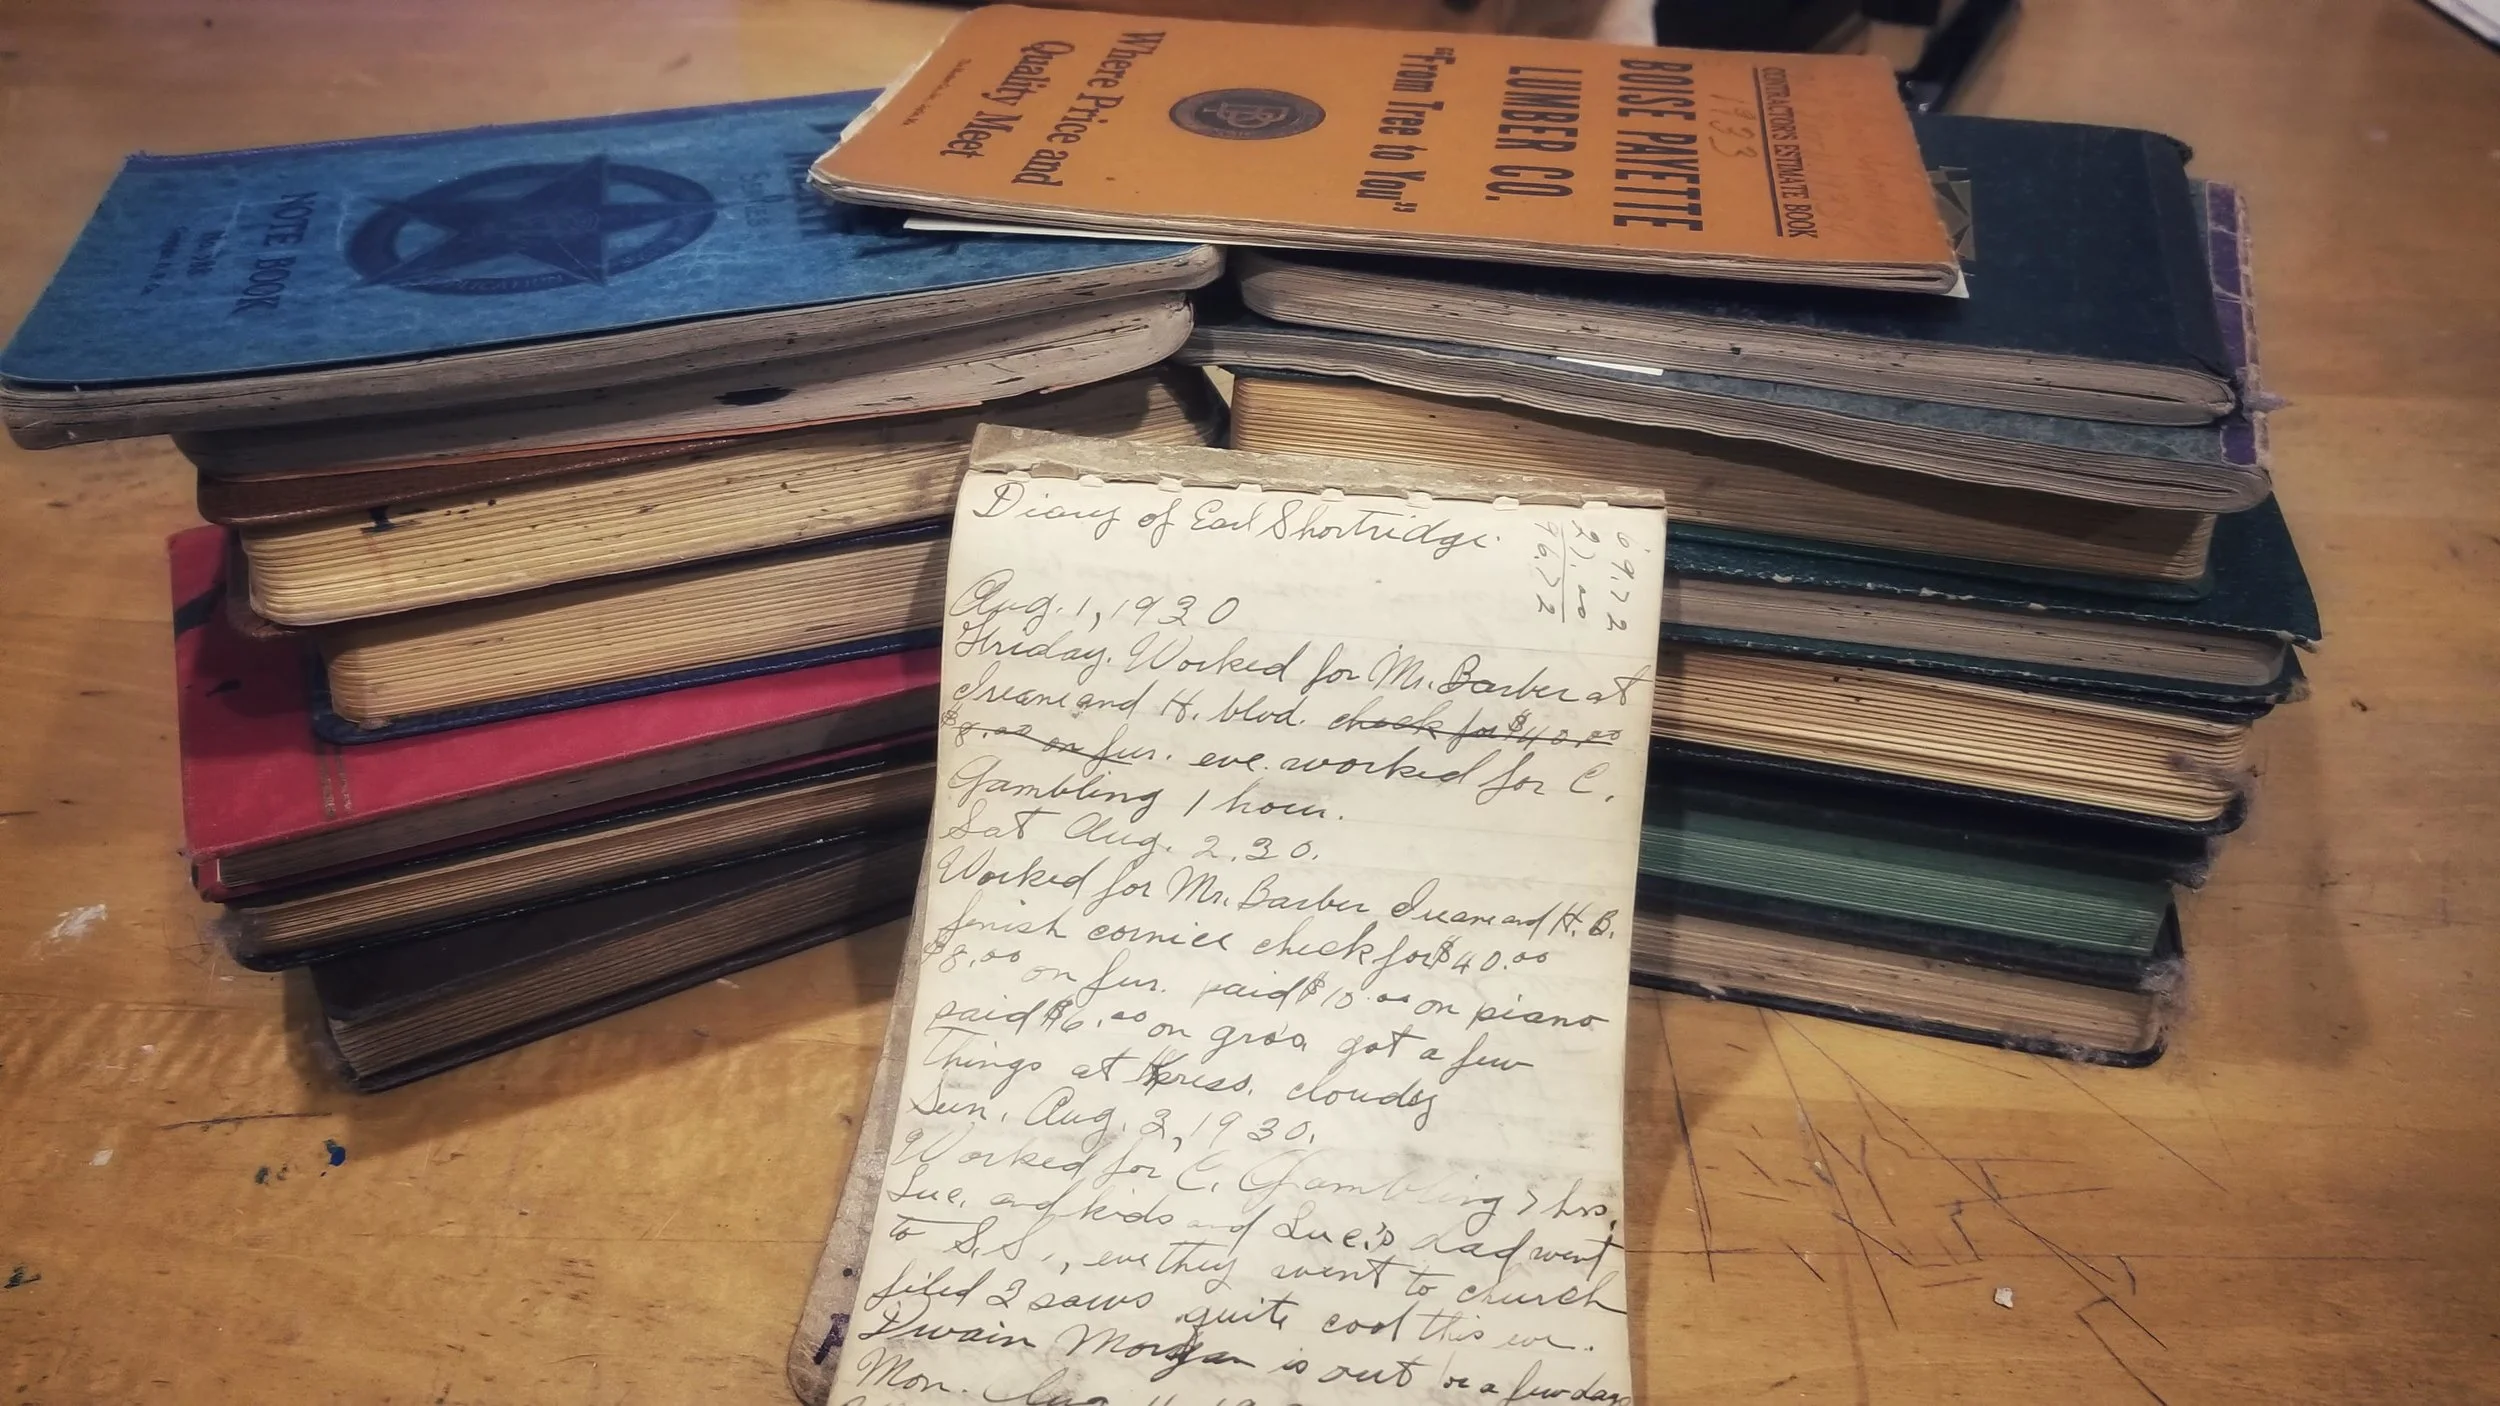 CONTRACTORS ESTIMATE BOOK
1933
BOISE PAYETTE
LUMBER CO.
"From Tree to You"
Where Price and
Quality Meet
NOTE BOOK
Diary of Earl Shortridge.
69.72
27.00
96.72
Aug. 1, 1930
Friday. Worked for Mr. Barber at
Irvane and H. blvd. check for $40.00
$8.00 on fur. eve. worked for C.
Gambling 1 hour.
Sat Aug. 2. 30.
Worked for Mr. Barber Irvane and H. B.
finish cornice check for $40.00
$8.00 on fur. paid $10.00 on piano
paid $6.00 on gro's got a few
things at cloudy
Sun. Aug. 3, 1930.
Worked for C. Gambling 7 hrs.
Lue. and kids and Lue's dad went
to S.S., eve they went to church
filed 3 saws quite cool this eve.
Dwain Morgan is out for a few days
Mon. Aug 4, 19